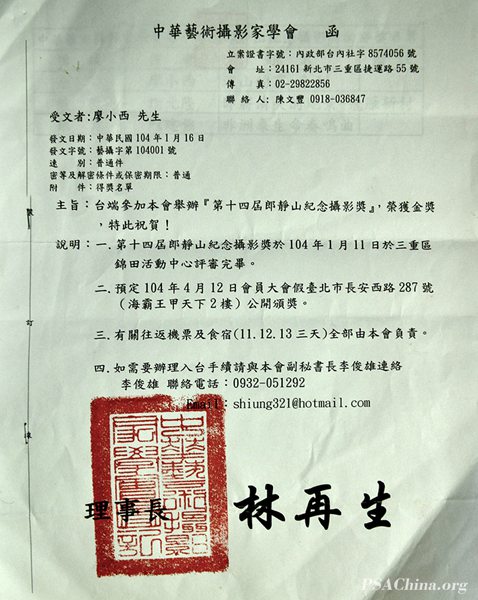 中華藝術攝影家學會　函
立案證書字號：內政部台內社字 8574056 號
會　　址：24161 新北市三重區捷運路 55 號
傳　　真：02-29822856
聯 絡 人：陳文豐 0918-036847
受文者:廖小西 先生
發文日期：中華民國 104 年 1 月 16 日
發文字號：藝攝字第 104001 號
速　　別：普通件
密等及解密條件或保密期限：普通
附　　件：得獎名單
主旨：台端參加本會舉辦『第十四屆郎靜山紀念攝影獎』，榮獲金獎
，特此祝賀！
說明：一．第十四屆郎靜山紀念攝影獎於 104 年 1 月 11 日於三重區
錦田活動中心評審完畢。
二．預定 104 年 4 月 12 日會員大會假臺北市長安西路 287 號
（海霸王甲天下 2 樓）公開頒獎。
三．有關往返機票及食宿(11.12.13 三天)全部由本會負責。
四．如需要辦理入台手續請與本會副秘書長李俊雄連絡
李俊雄 聯絡電話：0932-051292
Email：shiung321@hotmail.com
訂
理事長 林再生
PSAChina.org